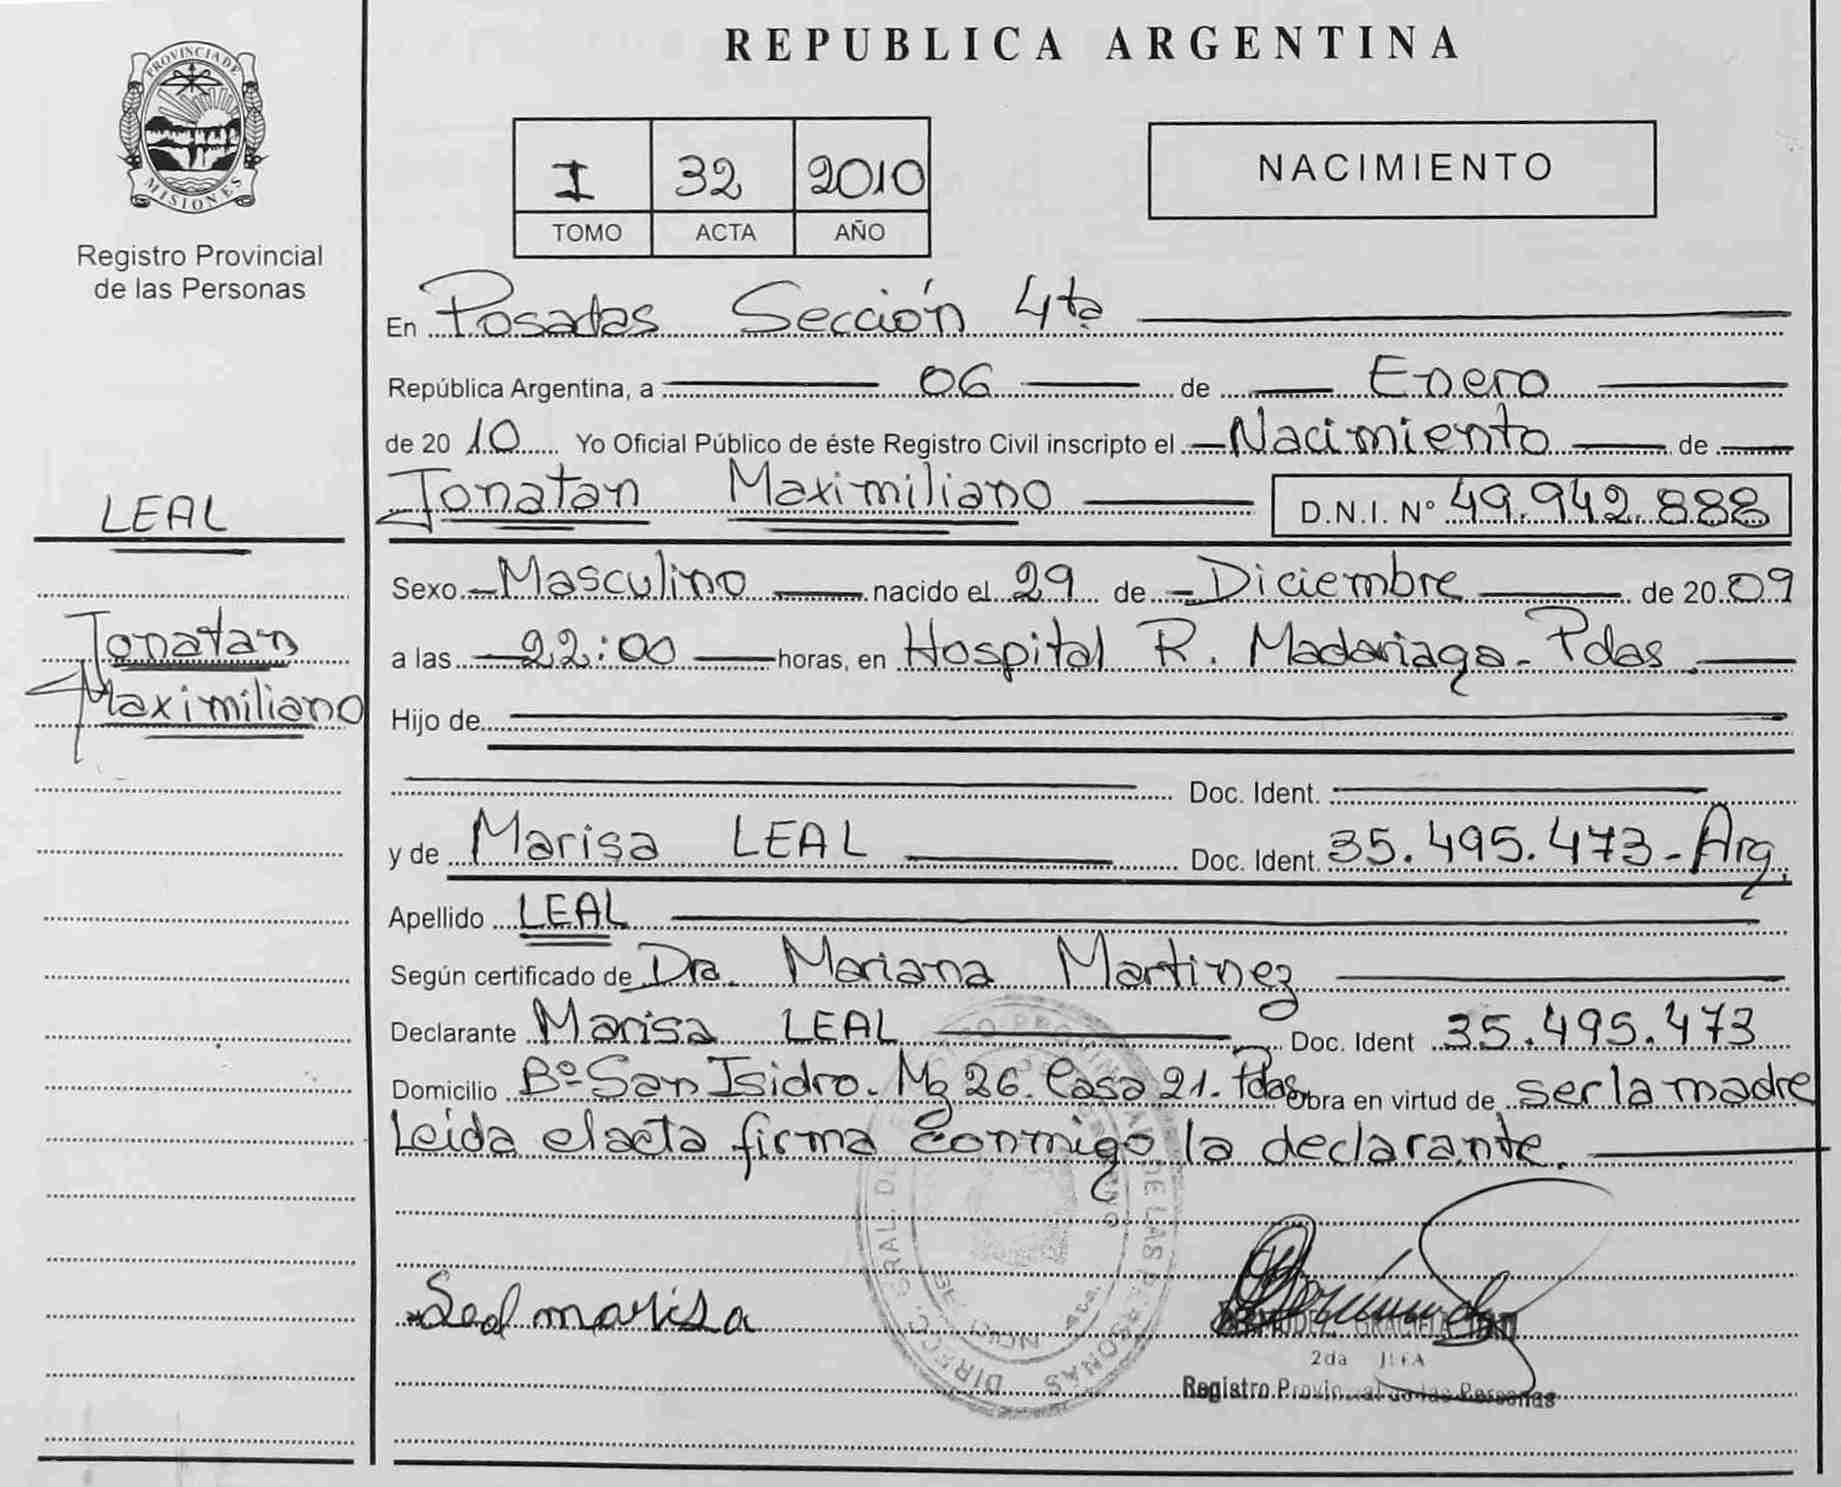 PROVINCIA DE
MISIONES
Registro Provincial
de las Personas
LEAL
Jonatan
Maximiliano
REPUBLICA ARGENTINA
I 32 2010
TOMO ACTA AÑO
NACIMIENTO
En Posadas Sección 4ta
República Argentina, a 06 de Enero
de 2010 Yo Oficial Público de éste Registro Civil inscripto el Nacimiento de
Jonatan Maximiliano D.N.I. N° 49.942.888
Sexo Masculino nacido el 29 de Diciembre de 2009
a las 22:00 horas, en Hospital R. Madariaga - Pdas.
Hijo de
Doc. Ident.
y de Marisa LEAL Doc. Ident. 35.495.473 - Arg.
Apellido LEAL
Según certificado de Dra. Mariana Martinez
Declarante Marisa LEAL Doc. Ident 35.495.473
Domicilio Bº San Isidro. Mz 26. Casa 21. Pdas. Obra en virtud de ser la madre
Leida el acta firma conmigo la declarante.
marisa
2da JEFA
Registro Provincial de las Personas